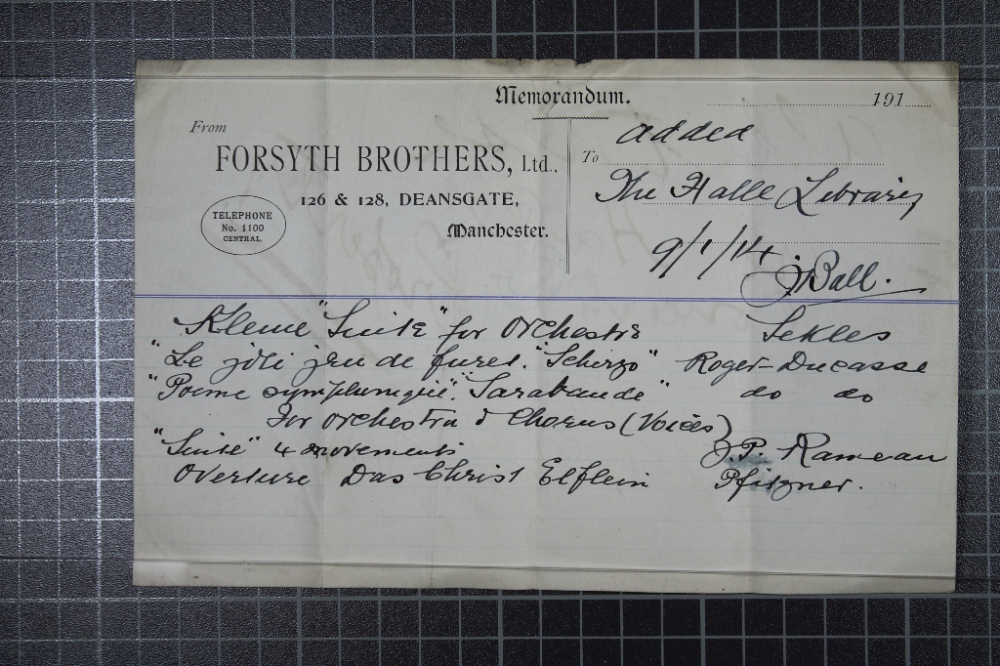 Memorandum.
191
From
FORSYTH BROTHERS, Ltd.,
126 & 128, DEANSGATE,
Manchester.
TELEPHONE
No. 1100
CENTRAL.
To
added
The Halle Library
9/1/14.
J Ball.
Kleine "Suite" for Orchestra Sekles
"Le joli jeu de furet." "Scherzo" Roger-Ducasse
"Poeme symphonique". "Sarabande" do do
For Orchestra & Chorus (Voices)
"Suite" 4 movements J.P. Rameau
Overture Das Christ Elflein Pfitzner.